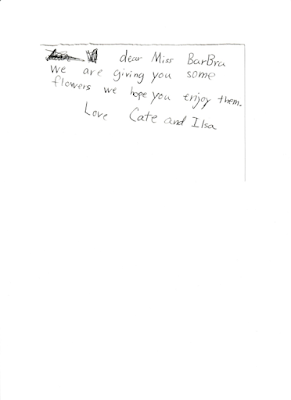 dear Miss BarBra
we are giving you some
flowers we hope you enjoy them.
Love Cate and Ilsa